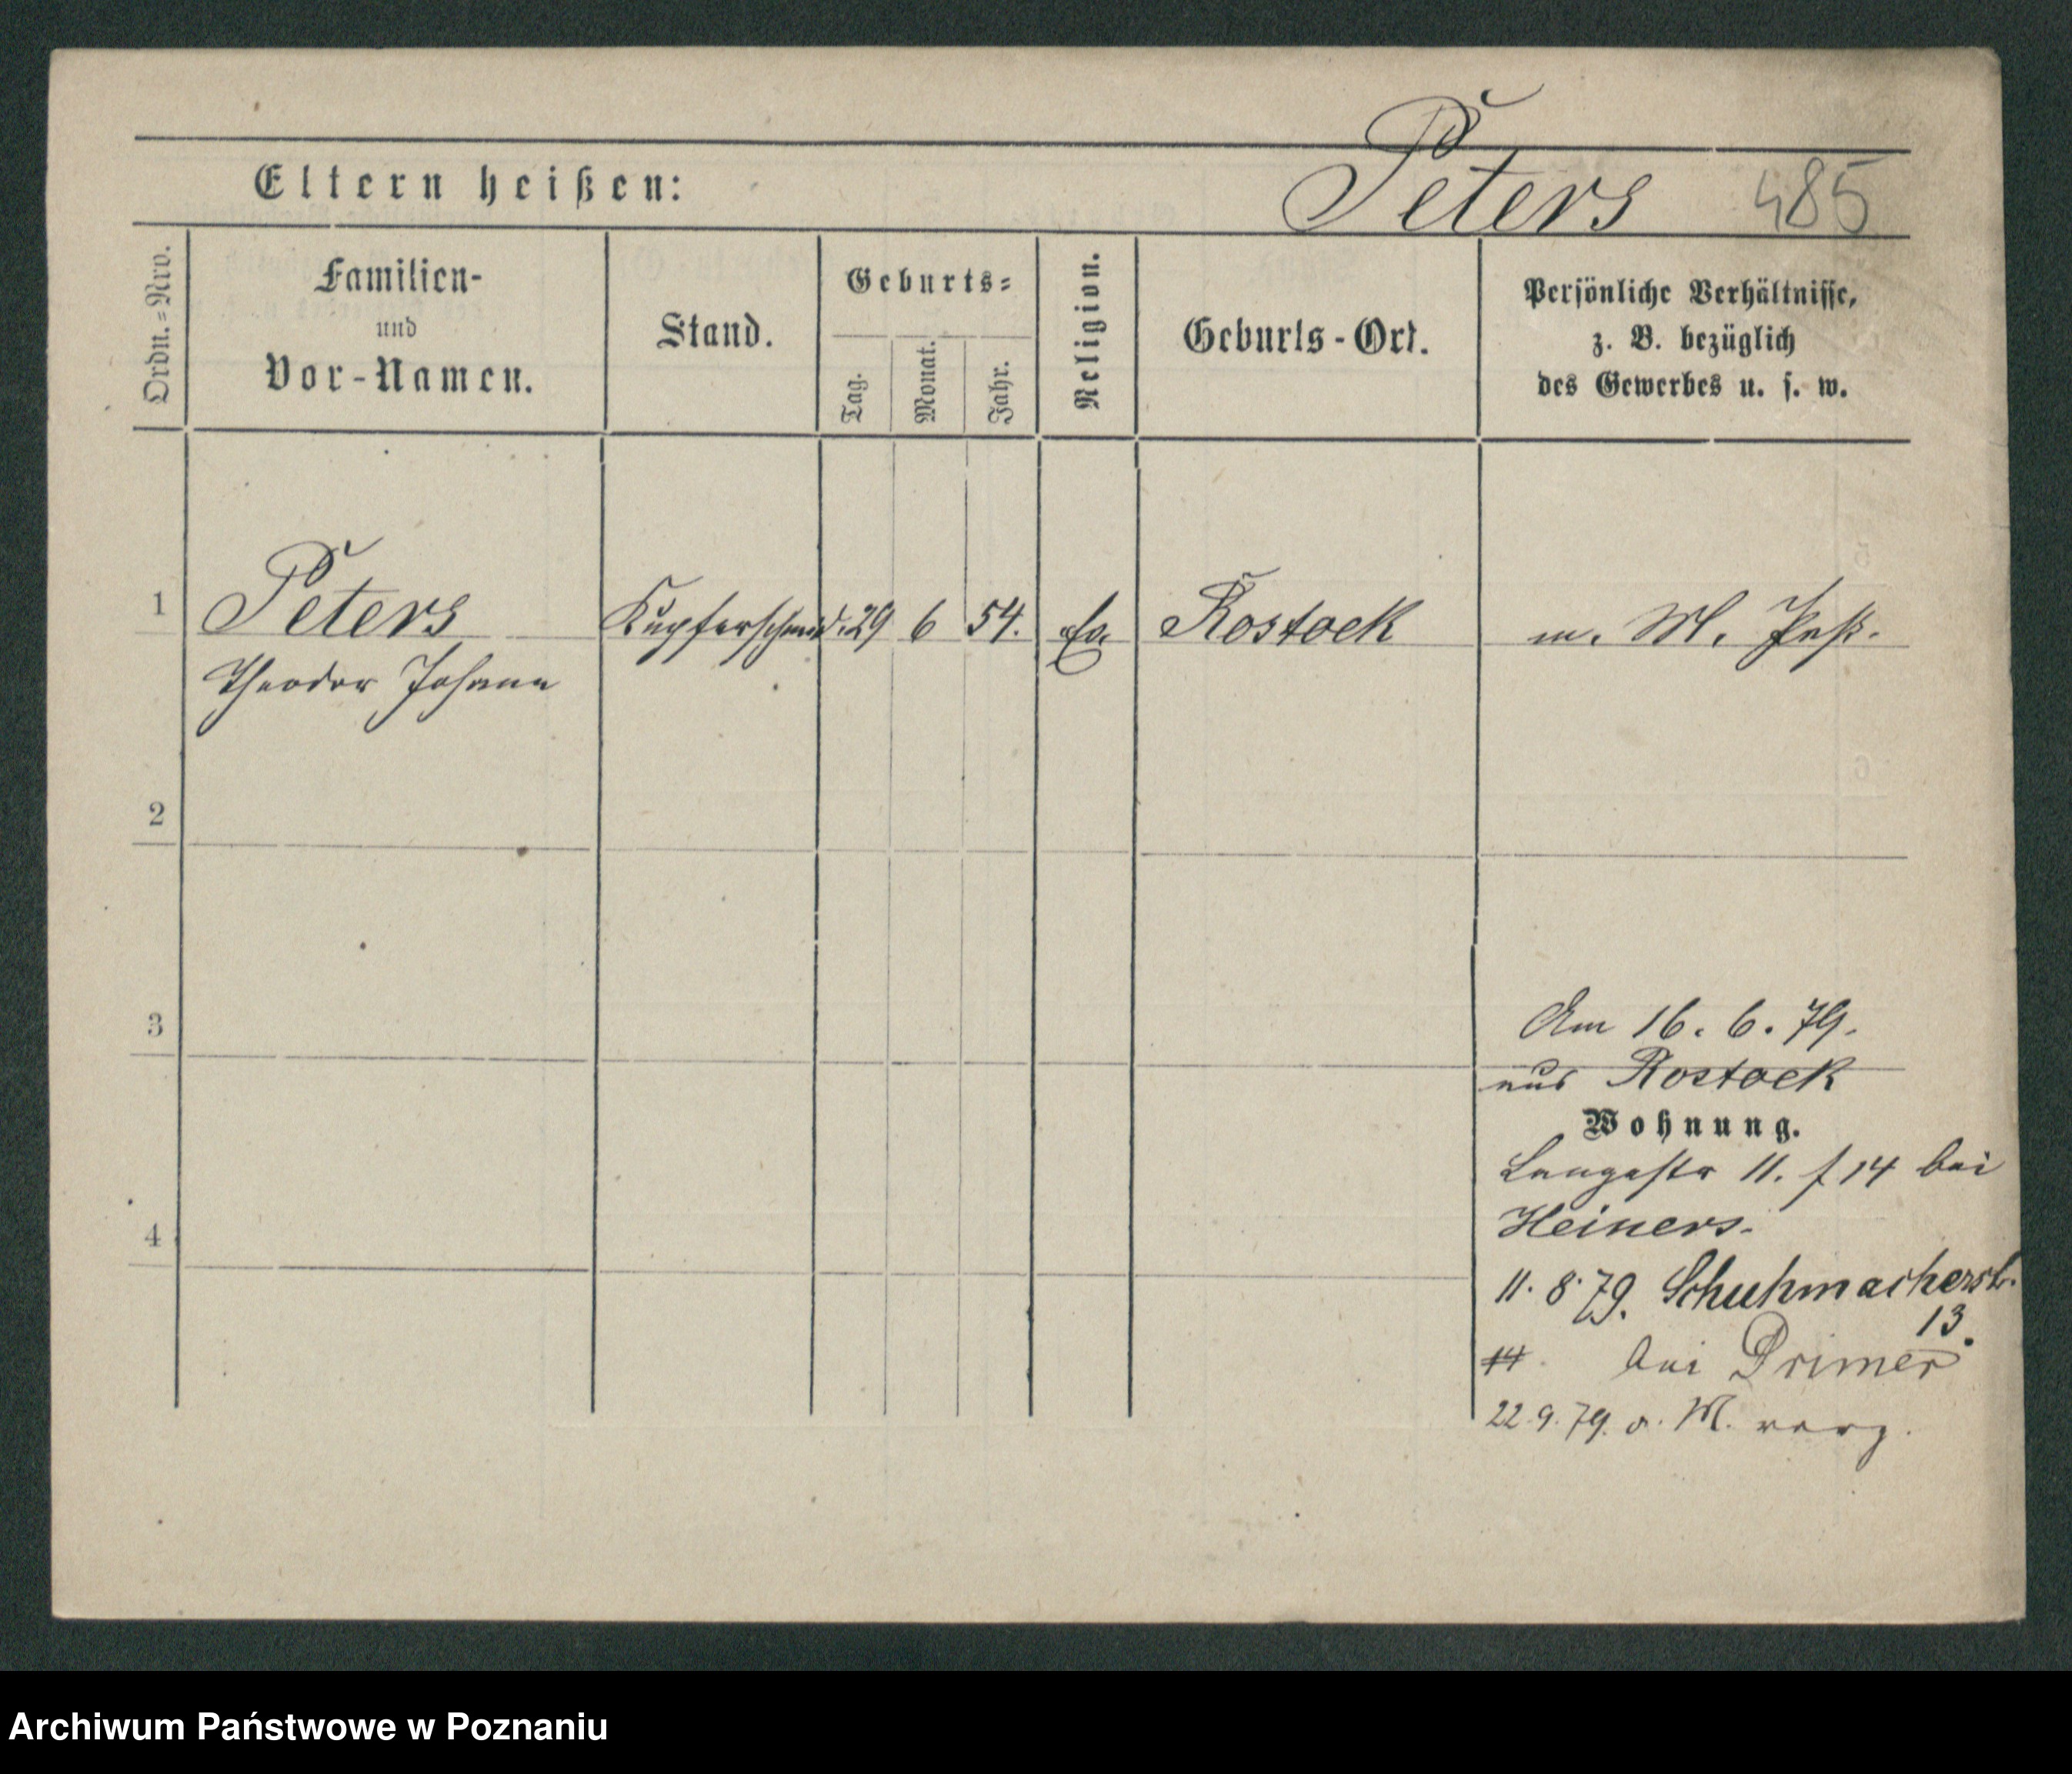 Peters 485
Eltern heißen:
Ordn.=Nro.
Familien-
und
Vor-Namen.
Stand.
Geburts=
Tag.
Monat.
Jahr.
Religion.
Geburts-Ort.
Persönliche Verhältnisse,
z. B. bezüglich
des Gewerbes u. s. w.
1 Peters Kupferschmid. 29 6 54. Ev Rostock m. M. Paß.
Theodor Johann
2
3
Am 16. 6. 79.
aus Rostock
Wohnung.
Langestr 11. f 14 bei
Heiners.
4
11. 8. 79. Schuhmacherstr.
13.
14 bei Primer
22. 9. 79. a. M. verz.
Archiwum Państwowe w Poznaniu